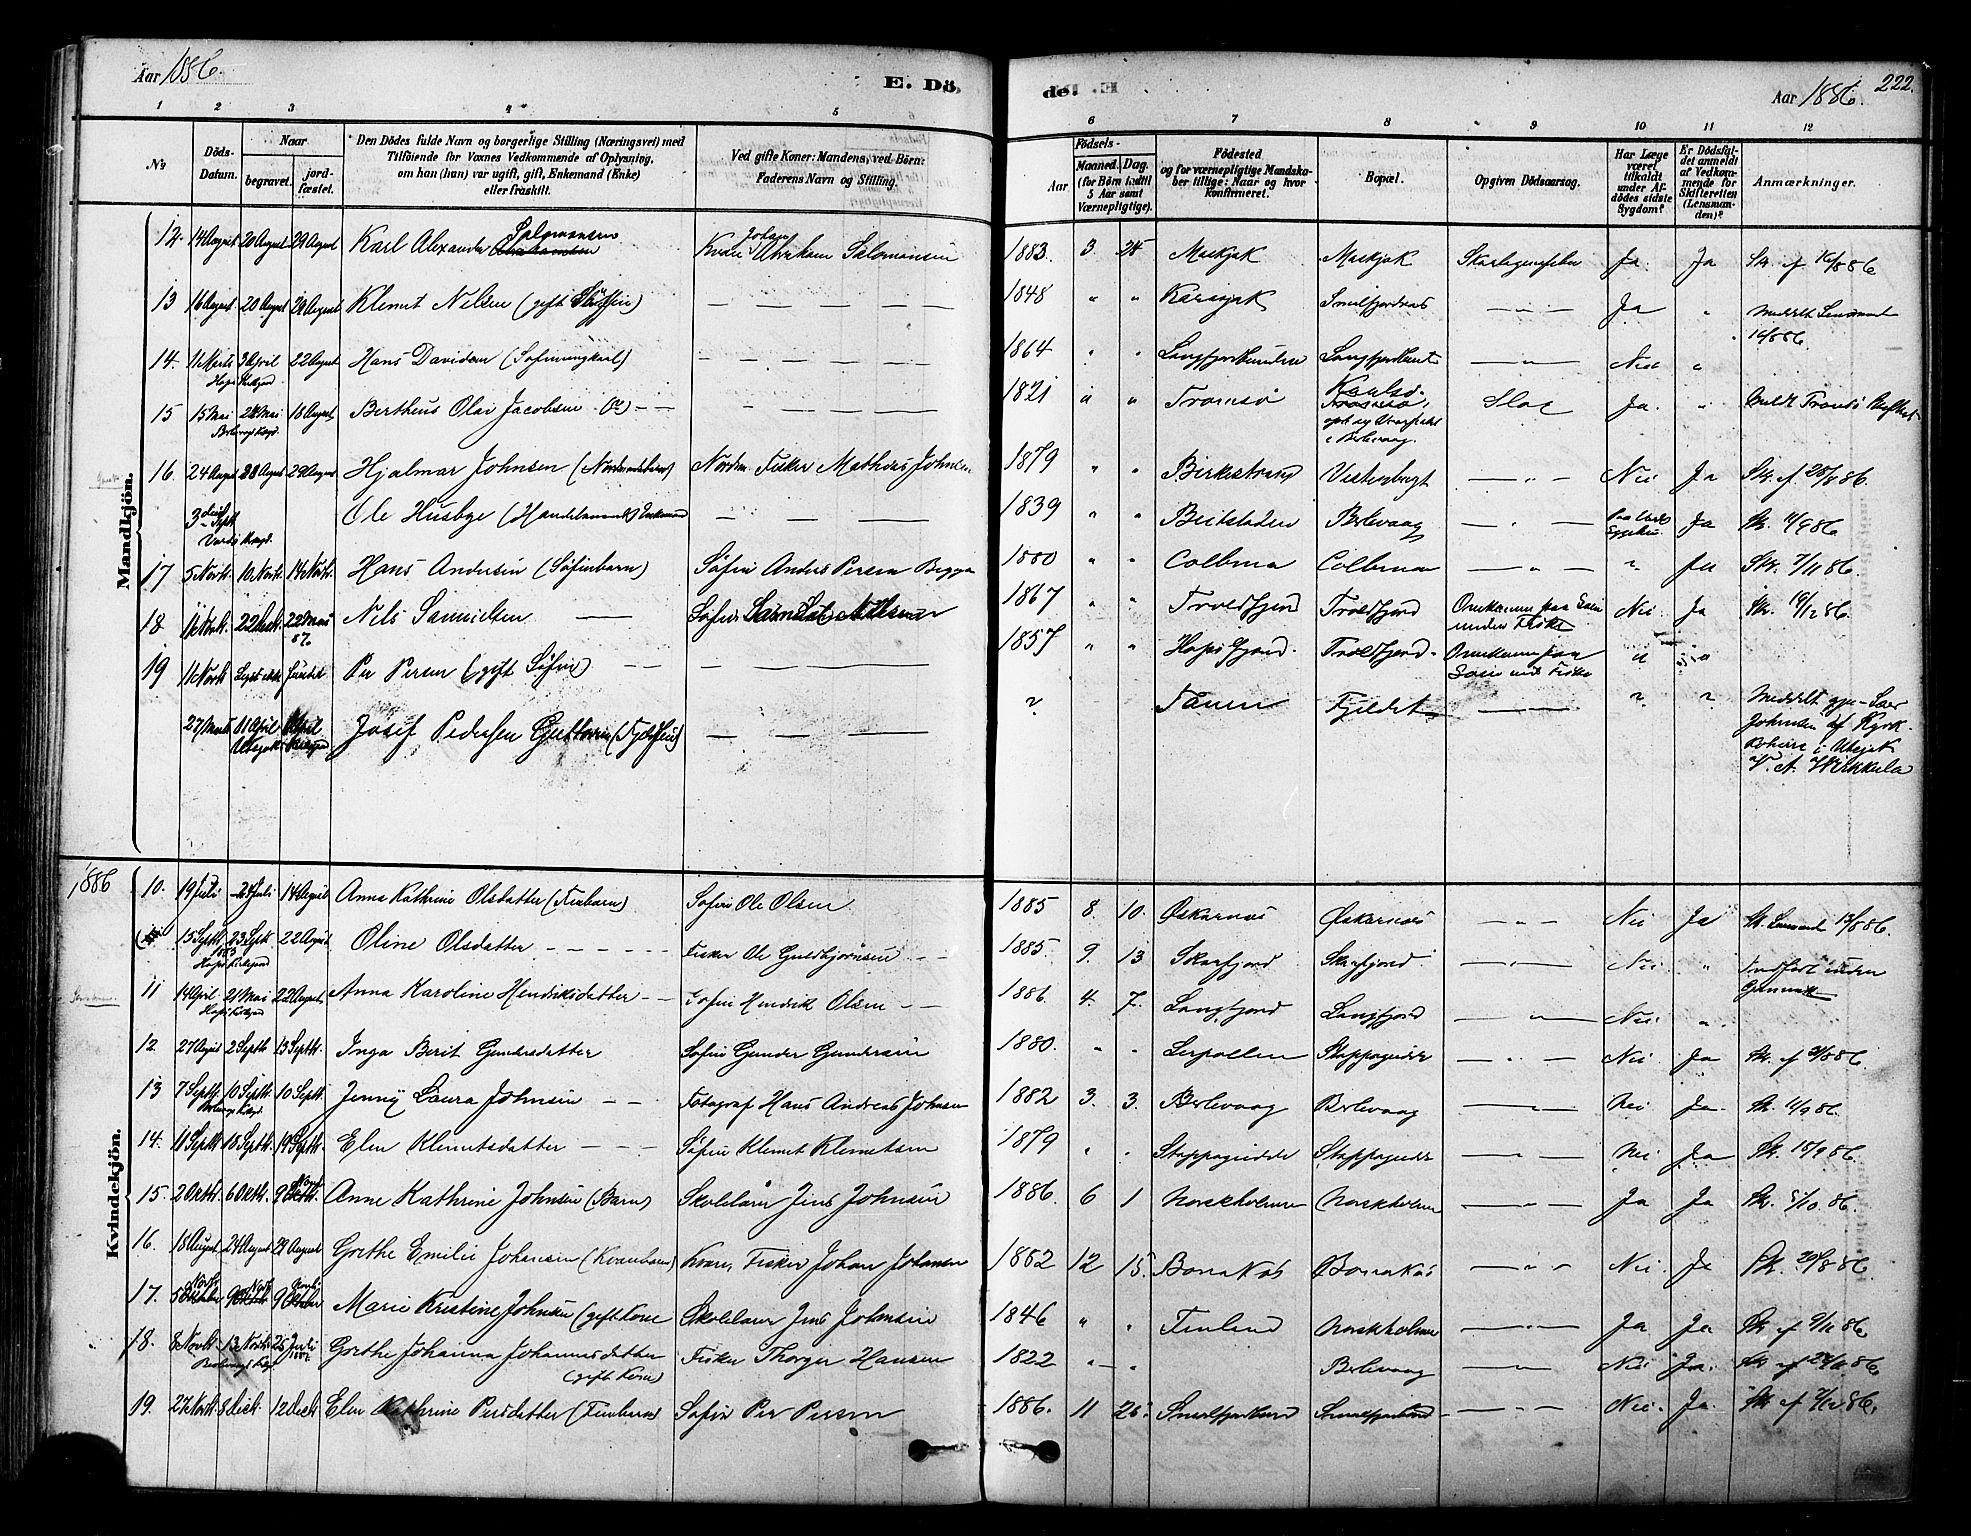 Aar 1886.
E. Dö
de.
Aar 1886.
222.
1 2 3 4 5 6 7 8 9 10 11 12
No
Döds-Datum.
Naar
begravet.
jord-fæstet.
Den Dödes fulde Navn og borgerlige Stilling (Næringsvei) med
Tilföiende for Voxnes Vedkommende af Oplysning,
om han (hun) var ugift, gift, Enkemand (Enke)
eller fraskilt.
Ved gifte Koner: Mandens, ved Börn:
Faderens Navn og Stilling.
Födsels-
Aar
Maaned. Dag.
(for Börn indtil
5 Aar samt
Værnepligtige).
Födested
og for værnepligtige Mandska-
ber tillige: Naar og hvor
Konfirmeret.
Bopæl.
Opgiven Dödsaarsag.
Har Læge
været
tilkaldt
under Af-
dödes sidste
Sygdom?
Er Dödsfal-
det anmeldt
af Vedkom-
mende for
Skifteretten
(Lensman-
den)?
Anmærkninger.
Mandkjön.
12. 14 August 20 August 29 August Karl Alexander Salomonsen Kvæn Johan Abraham Salomonsen 1883. 3. 25 Maskjok Maskjok Skarlagensfeber Ja. Ja Sk. af 16/8 86
13 16 August 20 August 29 August Klemet Nilsen (gift Söfin) — — — — 1848 " " Karasjok Smalfjordnes — " — Ja " Meddelt Lensmand 16/8 86.
14. 11 Marts 3 April 22 August Hans Davidsen (Söfinungkarl) — — — — 1864 " " Langfjordbunden Langfjordbunden — " — Nei "
Hops Kirkegd
15 15 Mai 24 Mai 18 August Bertheus Olai Jacobsen — — — — — — 1821 " " Tromsö Karlsö. Slag Ja. "
Berlevaag Kirkegd.
i Berlevaag.
16 24 August 28 August 29 August Hjalmar Johnsen (Nordmandsbarn) Nordm. Fisker Mathias Johnsen 1879 " " Birkestrand Vesterbugt — " — Nei Ja Sk. af 28/8 86.
3 Sept Ole Husbye (Handelsmand) Enkemand — — — 1839 " " Beitstaden Berlevaag — " — Ja Sk. 11/9 86
17 5 Novbr. 10 Novbr. 14 Novbr. Hans Andersen (Söfinbarn) Söfin Anders Persen Bigga 1880 " " Colbma Colbma — " — " Ja Sk. 7/11 86.
18. 11 Novbr. 22 Decb. 22 Mai 87. Nils Samuelsen — Söfin Samuel Nilsen 1867 " " Troldfjord Troldfjord Omkommen paa Söen under Fiske Nei Ja Sk. 16/12 86.
19 11 Novbr. Per Persen (gift Söfin) — — — — — 1857 " " Hopsfjord. Troldfjord. Omkommen paa Söen under Fiske " "
27 Marts 11 April Josef Pedersen Guttorm (Fjeldfin) — — — ? Tanen Fjeldet — " "
Johnsen af Kirk-
i Utsjok
1886
Kvindekjön.
10. 19 Juli 24 Juli 14 August Anna Kathrine Olsdatter (Finbarn) Söfin Ole Olsen. 1885 8. 10. Öskarnæs Öskarnæs — " — Nei Ja Sk. Lensmand 13/8 86.
15 Septb. 23 Septb. 22 August Oline Olsdatter — — — — — Fisker Ole Guldbjörnsen — — 1885. 9. 13 Skarfjord Skarfjord — " — Nei " Indfört under
Hops Kirkegaard
11 14 April 21 Mai 22 August, Anna Karoline Hendriksdatter — — Söfin Hendrik Olsen — — 1886. 4. 7. Langfjord Langfjord — " — Nei. "
Hops Kirkegd
12 27 August 2 Septb 13 Septb. Inga Berit Gundersdatter Söfin Gunder Gundersen 1880. " " Leirpollen Stappogiedde — " — Nei Ja Sk. af 31/8 86.
13 7 Septb. 10 Septb. 10 Septb. Jenny Laura Johnsen — — Fotograf Hans Andreas Johnsen 1882 3. 3. Berlevaag Berlevaag — " — Nei Ja. Sk. 11/9 86.
Berlevaags Kirkegd.
14. 11 Septb 18 Septb. 19 Septb. Elen Klemetsdatter — — — Söfin Klemet Klemetsen 1879 " " Stappogiedde Stappogiedde — " — Nei Ja Sk. 15/9 86.
15. 2 Octb. 6 Octb. 9 Anne Kathrine Johnsen (Barn) Skolelærer Jens Johnsen 1886. 6 1 Norskholmen Norskholmen — " — Ja Ja Sk. 5/10. 86.
16. 18 August 24 August 29 August Grethe Emilie Johansen (Kvænbarn) Kvæn, Fisker Johan Johansen 1882 12 15. Bonakas Bonakas — " — Nei. Ja Sk. 20/8 86.
17. 5 9 9 Marie Kristine Johnsen (gift Kone Skolelærer Jens Johnsen 1846 " " Finland Norskholmen — Ja Ja Sk. af 9/11 86.
18. 8 Novbr 13 Novbr. 26 Juli Grethe Johanna Johannesdatter Fisker Thorger Hansen 1822 " " Berlevaag — " — Nei Ja. Sk af 24/11 86
(gift Kone)
19. 27 Novbr. 8 Decb. 12 Decb. Elen Kathrine Persdatter (Finbarn) Söfin Per Persen 1886. 11 26. Smalfjordbund Smalfjordbund — " — Nei. Ja. Sk. af 7/12 86.